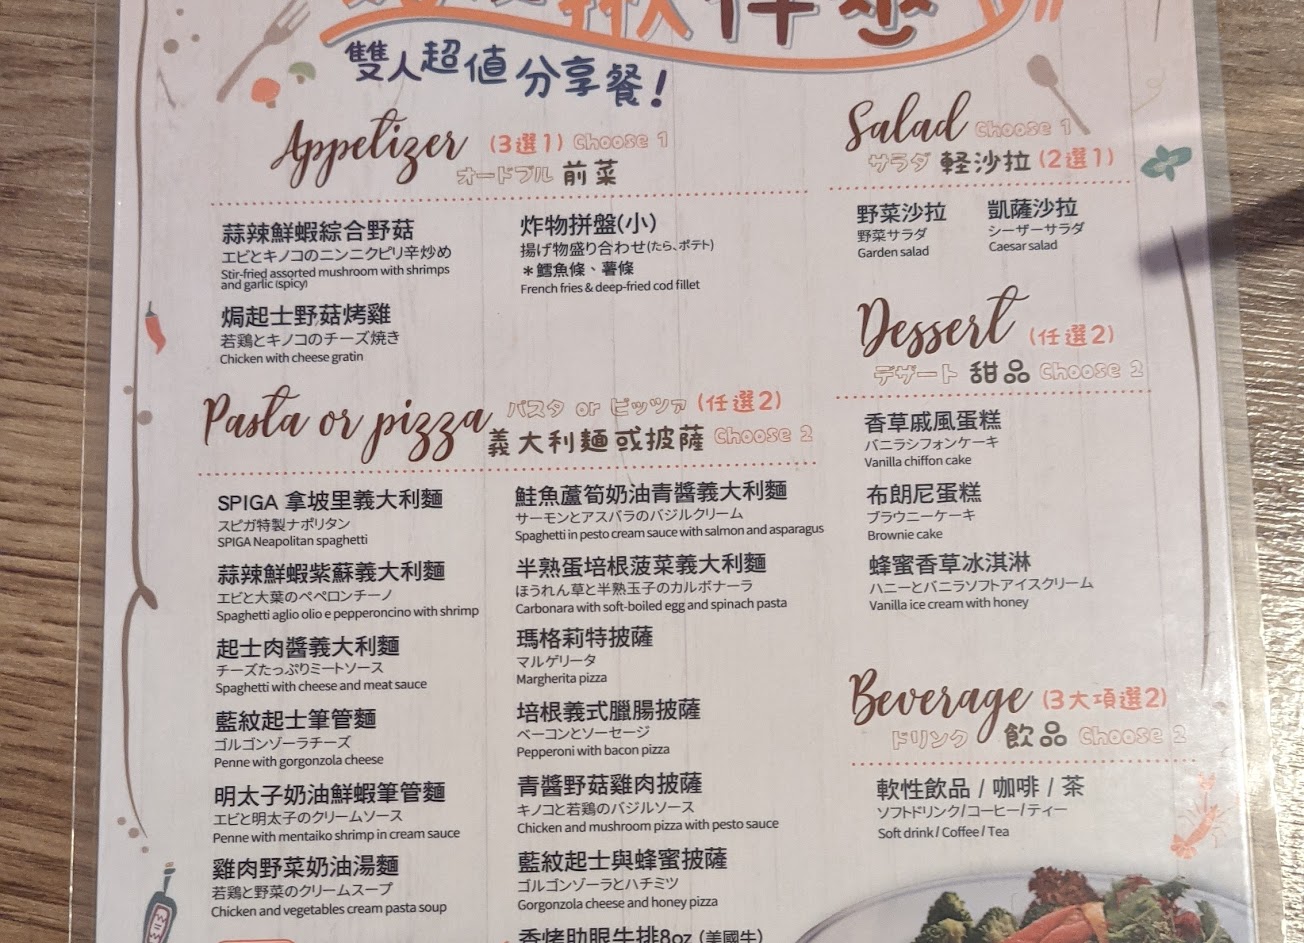 雙人超值分享餐!
Appetizer (3選1) Choose 1
オードブル 前菜
蒜辣鮮蝦綜合野菇
エビとキノコのニンニクピリ辛炒め
Stir-fried assorted mushroom with shrimps
and garlic (spicy)
焗起士野菇烤雞
若鶏とキノコのチーズ焼き
Chicken with cheese gratin
炸物拼盤(小)
揚げ物盛り合わせ(たら、ポテト)
*鱈魚條、薯條
French fries & deep-fried cod fillet
Pasta or pizza パスタ or ピッツァ (任選2)
義大利麵或披薩 Choose 2
SPIGA 拿坡里義大利麵
スピガ特製ナポリタン
SPIGA Neapolitan spaghetti
蒜辣鮮蝦紫蘇義大利麵
エビと大葉のペペロンチーノ
Spaghetti aglio olio e pepperoncino with shrimp
起士肉醬義大利麵
チーズたっぷりミートソース
Spaghetti with cheese and meat sauce
藍紋起士筆管麵
ゴルゴンゾーラチーズ
Penne with gorgonzola cheese
明太子奶油鮮蝦筆管麵
エビと明太子のクリームソース
Penne with mentaiko shrimp in cream sauce
雞肉野菜奶油湯麵
若鶏と野菜のクリームスープ
Chicken and vegetables cream pasta soup
鮭魚蘆筍奶油青醬義大利麵
サーモンとアスパラのバジルクリーム
Spaghetti in pesto cream sauce with salmon and asparagus
半熟蛋培根菠菜義大利麵
ほうれん草と半熟玉子のカルボナーラ
Carbonara with soft-boiled egg and spinach pasta
瑪格莉特披薩
マルゲリータ
Margherita pizza
培根義式臘腸披薩
ベーコンとソーセージ
Pepperoni with bacon pizza
青醬野菇雞肉披薩
キノコと若鶏のバジルソース
Chicken and mushroom pizza with pesto sauce
藍紋起士與蜂蜜披薩
ゴルゴンゾーラとハチミツ
Gorgonzola cheese and honey pizza
香烤肋眼牛排8oz (美國牛)
Salad Choose 1
サラダ 軽沙拉 (2選1)
野菜沙拉
野菜サラダ
Garden salad
凱薩沙拉
シーザーサラダ
Caesar salad
Dessert (任選2)
デザート 甜品 Choose 2
香草戚風蛋糕
バニラシフォンケーキ
Vanilla chiffon cake
布朗尼蛋糕
ブラウニーケーキ
Brownie cake
蜂蜜香草冰淇淋
ハニーとバニラソフトアイスクリーム
Vanilla ice cream with honey
Beverage (3大項選2)
ドリンク 飲品 Choose 2
軟性飲品 / 咖啡 / 茶
ソフトドリンク/コーヒー/ティー
Soft drink / Coffee / Tea